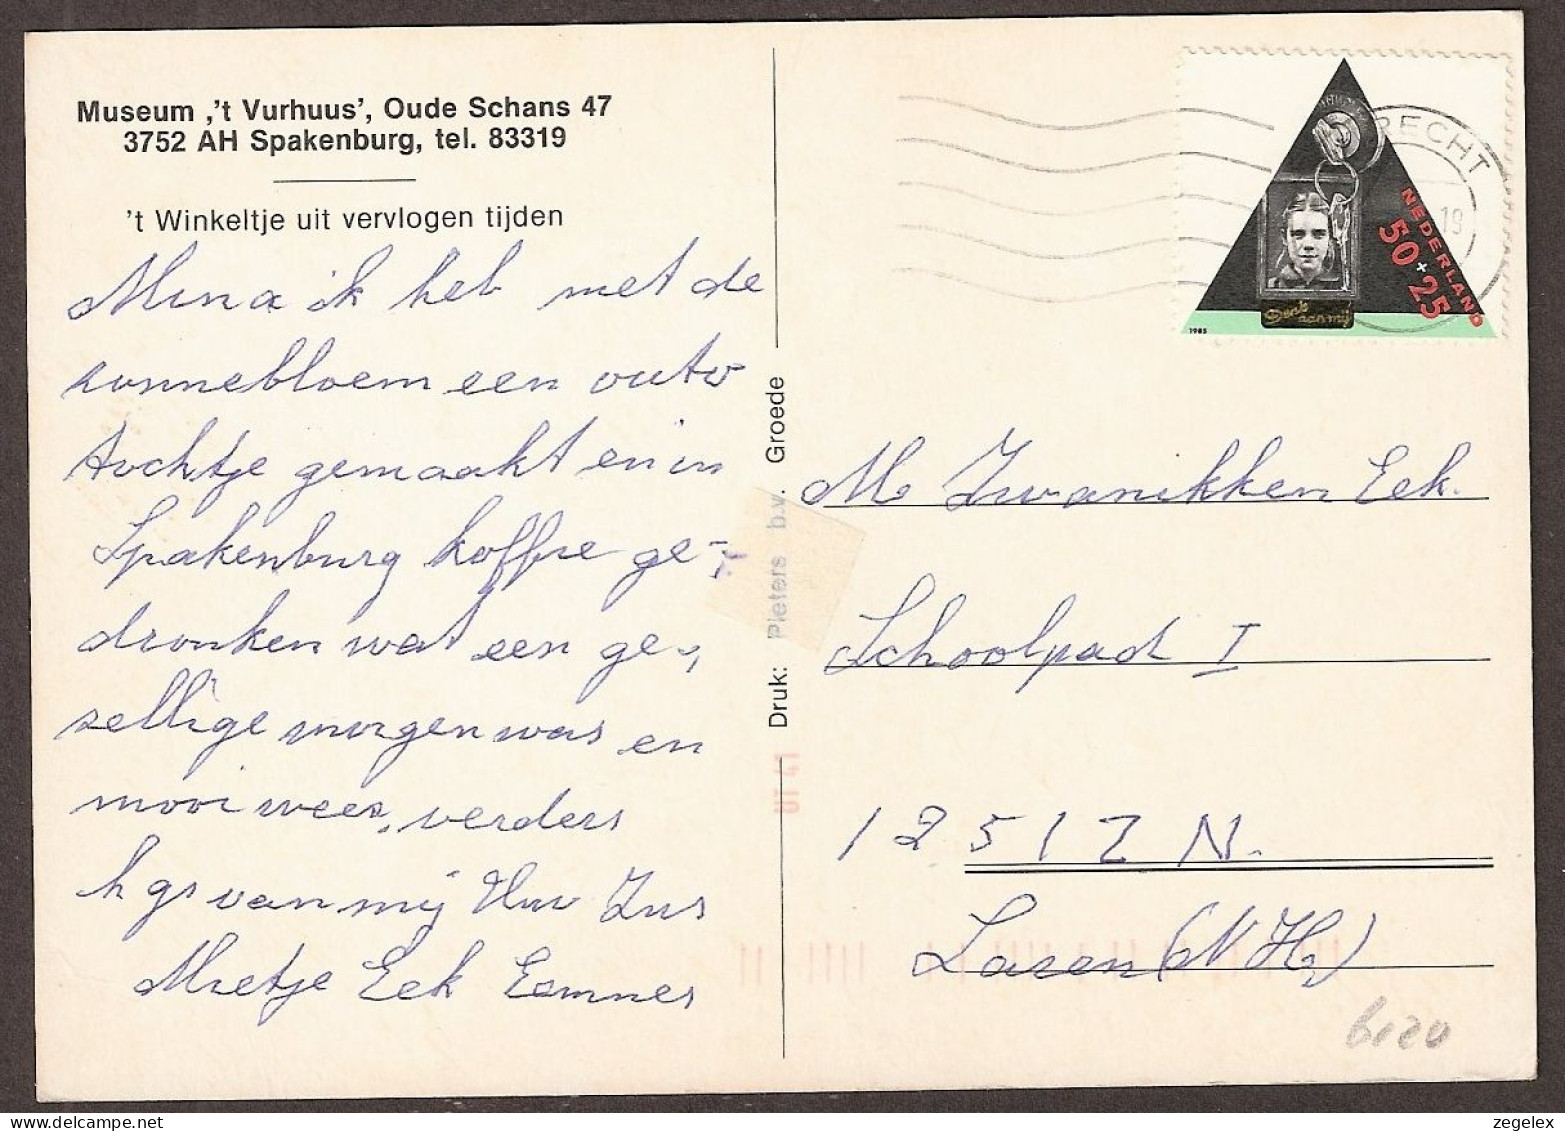 Museum ,'t Vurhuus', Oude Schans 47
3752 AH Spakenburg, tel. 83319
't Winkeltje uit vervlogen tijden
Mina ik heb met de
zonnebloem een outo
tochtje gemaakt en in
Spakenburg koffie ge-
dronken wat een ge-
zellige morgen was en
mooi weer, verders
h gr van mij Uw Zus
Mietje Eek Eemnes
Druk: Pieters b.v. Groede
UT 41
RECHT
19
NEDERLAND
50+25
Denk aan mij
1985
M Zwanikken Eek.
Schoolpad I
1251 Z N.
Laren (NH)
zegelex